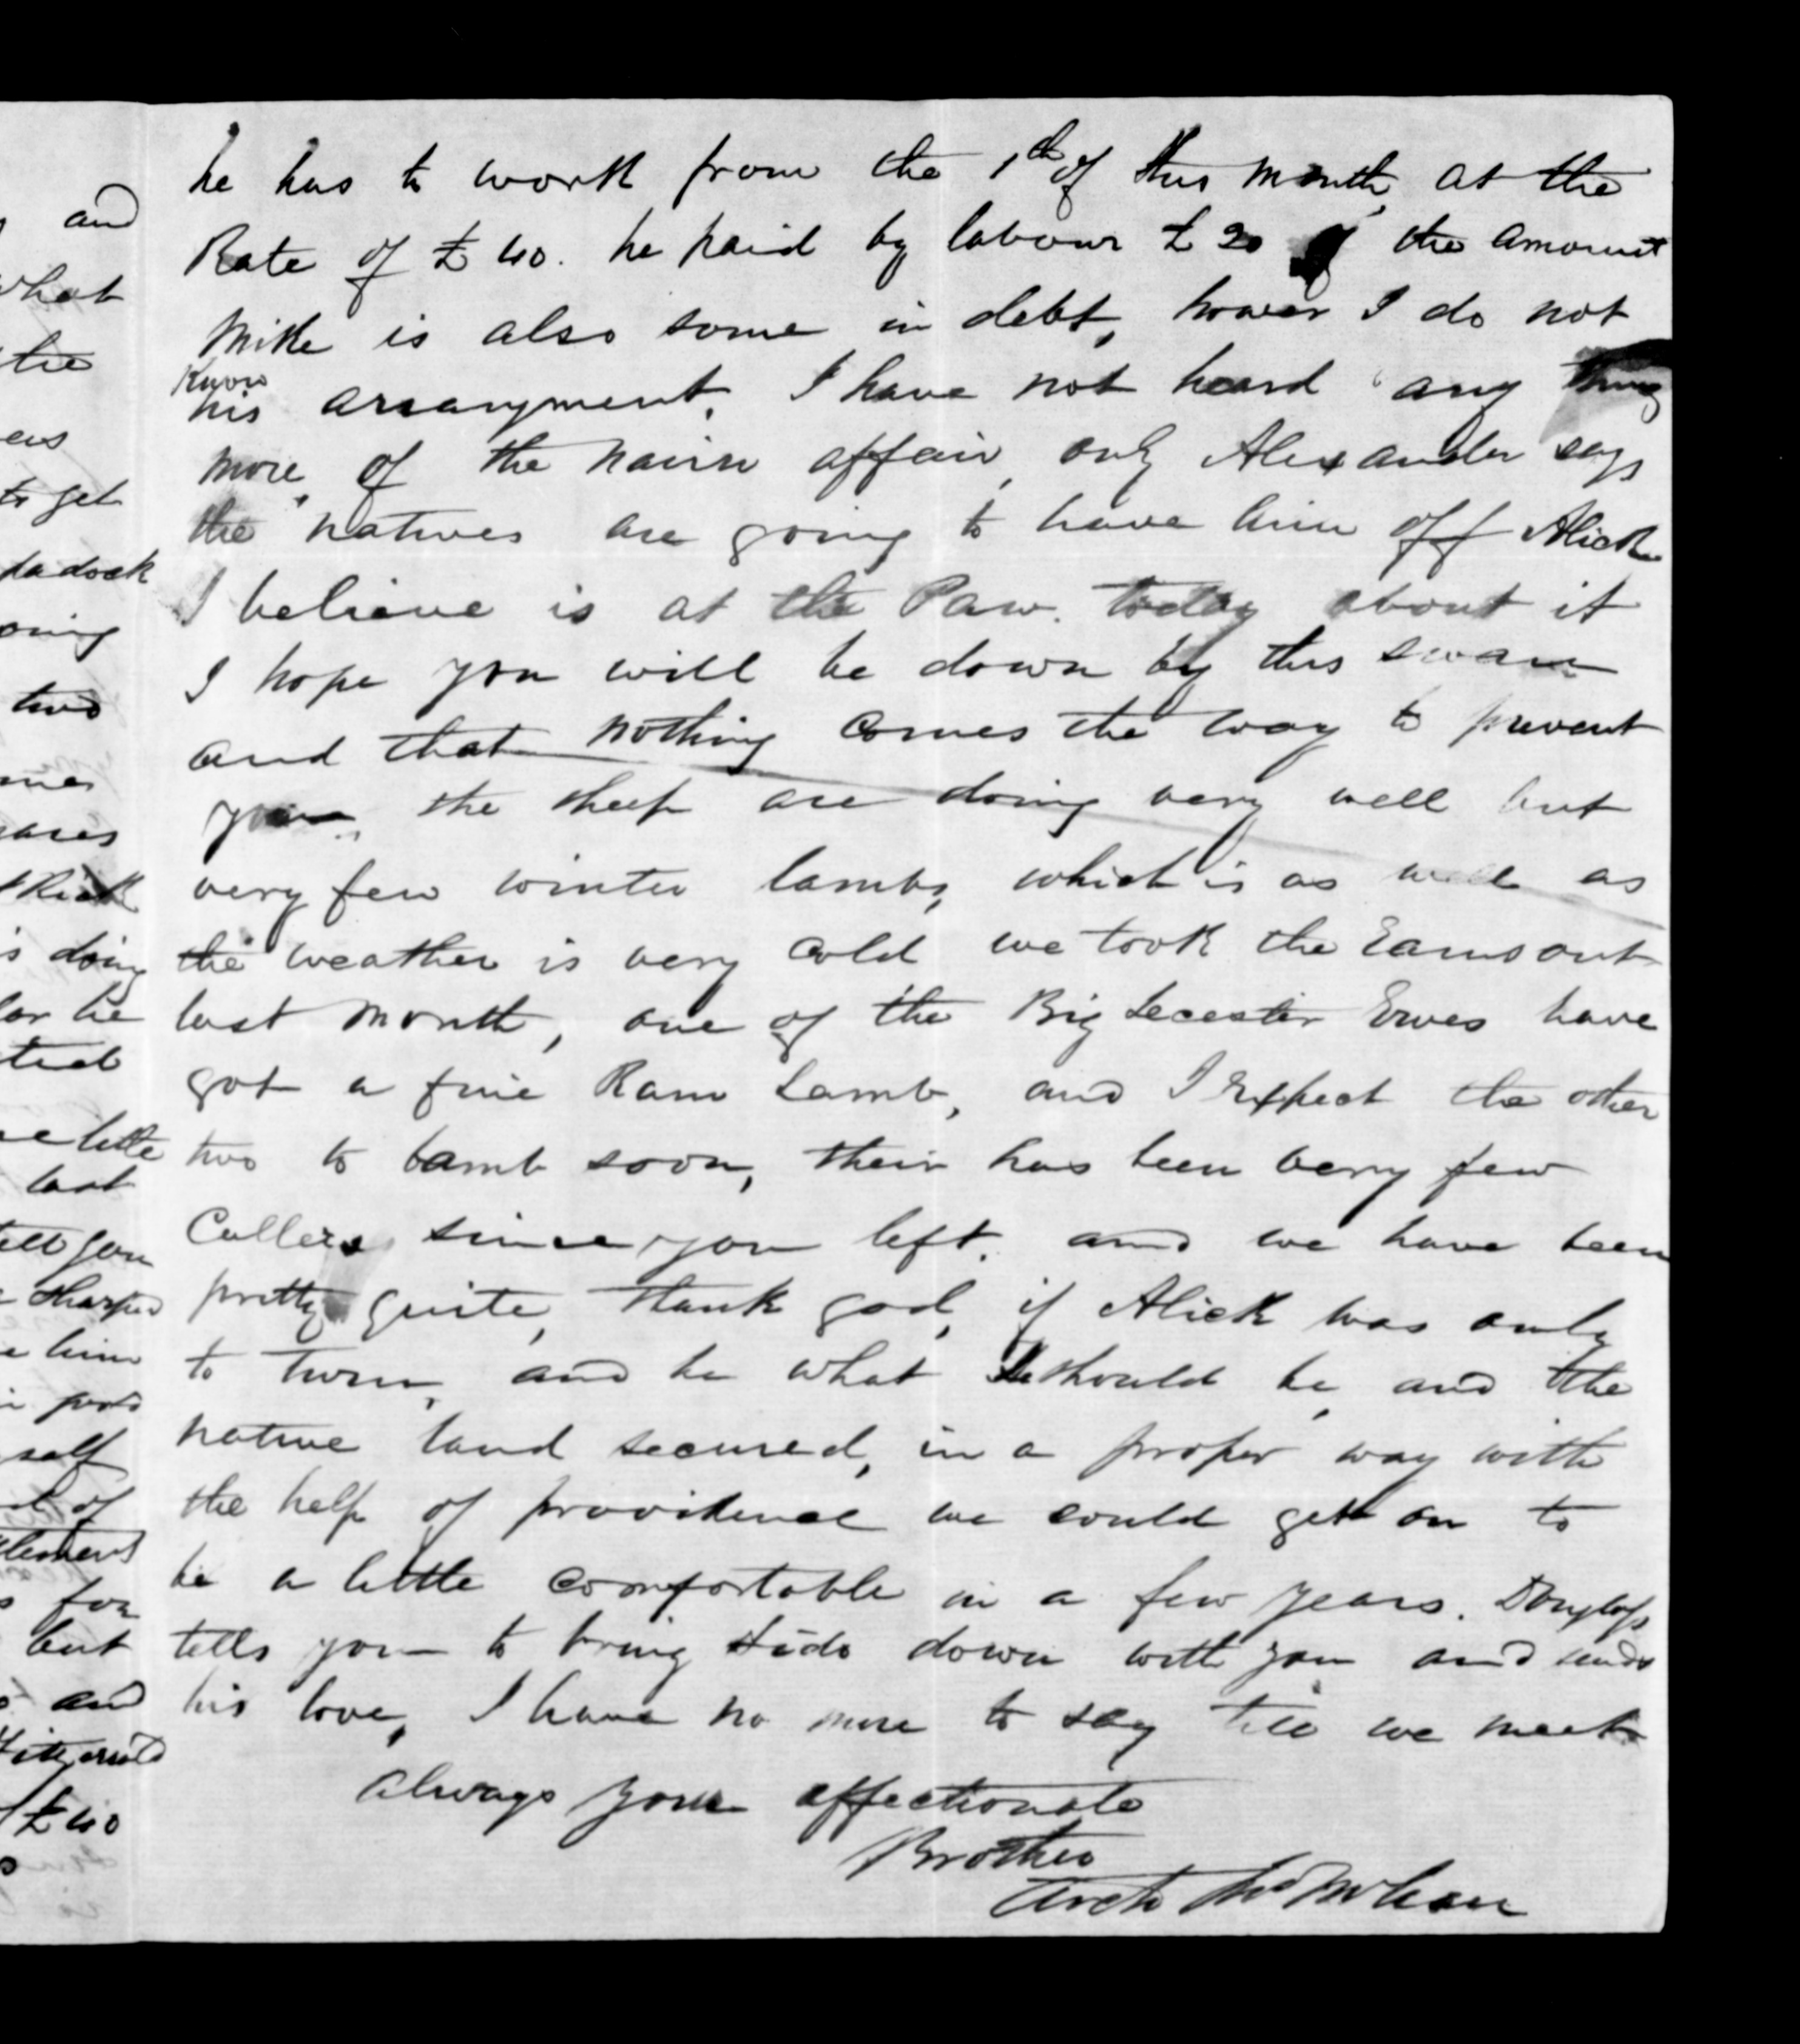 he has to work from the 1th of this month, at the
Rate of £40. he paid by labour £20 of the amount
Mike is also some in debt, hower I do not
Know
his arrangment, I have not heard any thing
more, of the Nairn affair, only Alexander says
the natives are going to have him off Alick
I believe is at the Paw. today about it
I hope you will be down by this swan
and that nothing comes the way to prevent
you, the sheep are doing very well but
very few winter lambs, which is as well as
the weather is very cold we took the Rams out
last month, one of the Big Lecester Ewes have
got a fine Ram Lamb, and I Expect the other
two to lamb soon, their has been very few
Callers since you left. and we have been
pretty quite, thank god, if Alick was only
to turn, and be what he should be, and the
native land secured, in a proper way with
the help of providence we could gett on to
be a little comfortable in a few years. Douglass
tells you to bring down with you and sends
his love, I have no more to say till we meet
always your affectionate
Brother
Arch McLean
and
what
the
to get
padock
going
two
is doing
little
last
tell you
sharper
him
self
of
for
but
and
£40